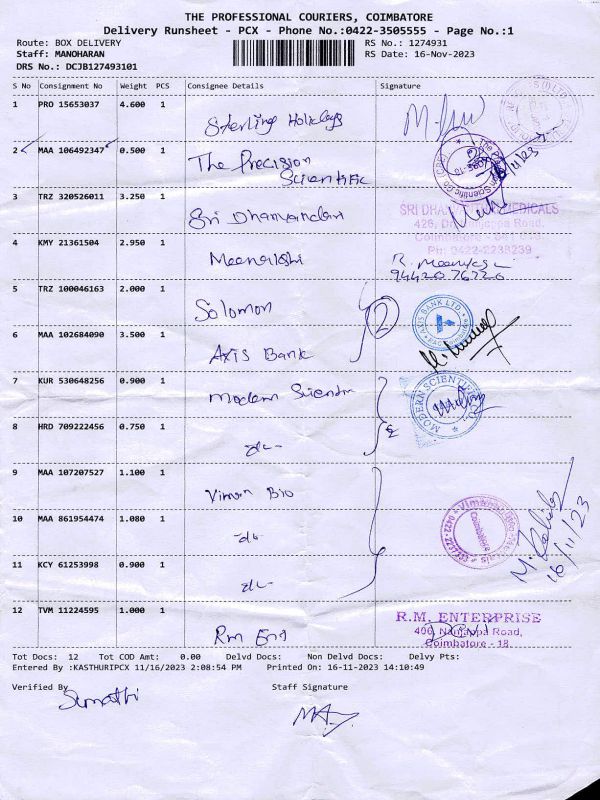 THE PROFESSIONAL COURIERS, COIMBATORE
Delivery Runsheet - PCX - Phone No.:0422-3505555 - Page No.:1
Route: BOX DELIVERY RS No.: 1274931
Staff: MANOHARAN RS Date: 16-Nov-2023
DRS No.: DCJB127493101
S No Consignment No Weight PCS Consignee Details Signature
1 PRO 15653037 4.600 1
Sterling Holidays
2 MAA 106492347 0.500 1
The Precision
Scientific
16/11/23
3 TRZ 320526011 3.250 1
Sri
SRI MEDICALS
Ph: 0422-2238239
4 KMY 21361504 2.950 1
Meenakshi
R.
5 TRZ 100046163 2.000 1
Solomon
2
AXIS BANK LTD.
6 MAA 102684090 3.500 1
Axis Bank
7 KUR 530648256 0.900 1
Modern
MODERN SCIENTIFIC
8 HRD 709222456 0.750 1
9 MAA 107207527 1.100 1
Viman Bio
10 MAA 861954474 1.080 1
Coimbatore
16/11/23
11 KCY 61253998 0.900 1
12 TVM 11224595 1.000 1
Rm Ent
R.M. ENTERPRISE
406, Nanjappa Road,
Coimbatore - 18.
Tot Docs: 12 Tot COD Amt: 0.00 Delvd Docs: Non Delvd Docs: Delvy Pts:
Entered By :KASTHURIPCX 11/16/2023 2:08:54 PM Printed On: 16-11-2023 14:10:49
Verified By Staff Signature
Sumathi